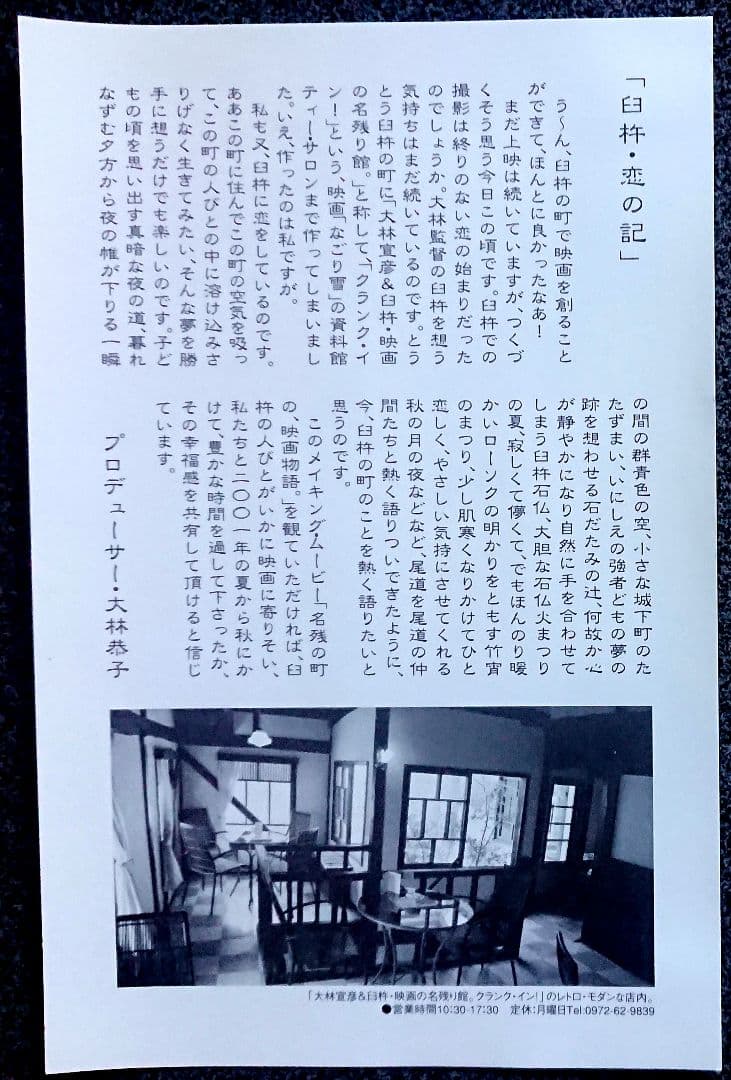 「臼杵・恋の記」
う〜ん、臼杵の町で映画を創ること
ができて、ほんとに良かったなあ！
まだ上映は続いていますが、つくづ
くそう思う今日この頃です。臼杵での
撮影は終りのない恋の始まりだった
のでしょうか。大林監督の臼杵を想う
気持ちはまだ続いているのです。とう
とう臼杵の町に「大林宣彦＆臼杵・映画
の名残り館。」と称して、「クランク・イ
ン！」という、映画「なごり雪」の資料館
ティーサロンまで作ってしまいまし
た。いえ、作ったのは私ですが。
私も又、臼杵に恋をしているのです。
ああこの町に住んでこの町の空気を吸っ
て、この町の人びとの中に溶け込みさ
りげなく生きてみたい、そんな夢を勝
手に想うだけでも楽しいのです。子ど
もの頃を思い出す真暗な夜の道、暮れ
なずむ夕方から夜の帷が下りる一瞬
の間の群青色の空、小さな城下町のた
たずまい、いにしえの強者どもの夢の
跡を想わせる石だたみの辻、何故か心
が静やかになり自然に手を合わせて
しまう臼杵石仏、大胆な石仏火まつり
の夏、寂しくて儚くて、でもほんのり暖
かいローソクの明かりをともす竹宵
のまつり、少し肌寒くなりかけてひと
恋しく、やさしい気持にさせてくれる
秋の月の夜などなど、尾道を尾道の仲
間たちと熱く語りついできたように、
今、臼杵の町のことを熱く語りたいと
思うのです。
このメイキング・ムービー「名残の町
の、映画物語。」を観ていただければ、臼
杵の人びとがいかに映画に寄りそい、
私たちと二〇〇一年の夏から秋にか
けて、豊かな時間を過して下さったか、
その幸福感を共有して頂けると信じ
ています。
プロデューサー・大林恭子
「大林宣彦＆臼杵・映画の名残り館。クランク・イン！」のレトロ・モダンな店内。
●営業時間10:30-17:30　定休:月曜日Tel:0972-62-9839